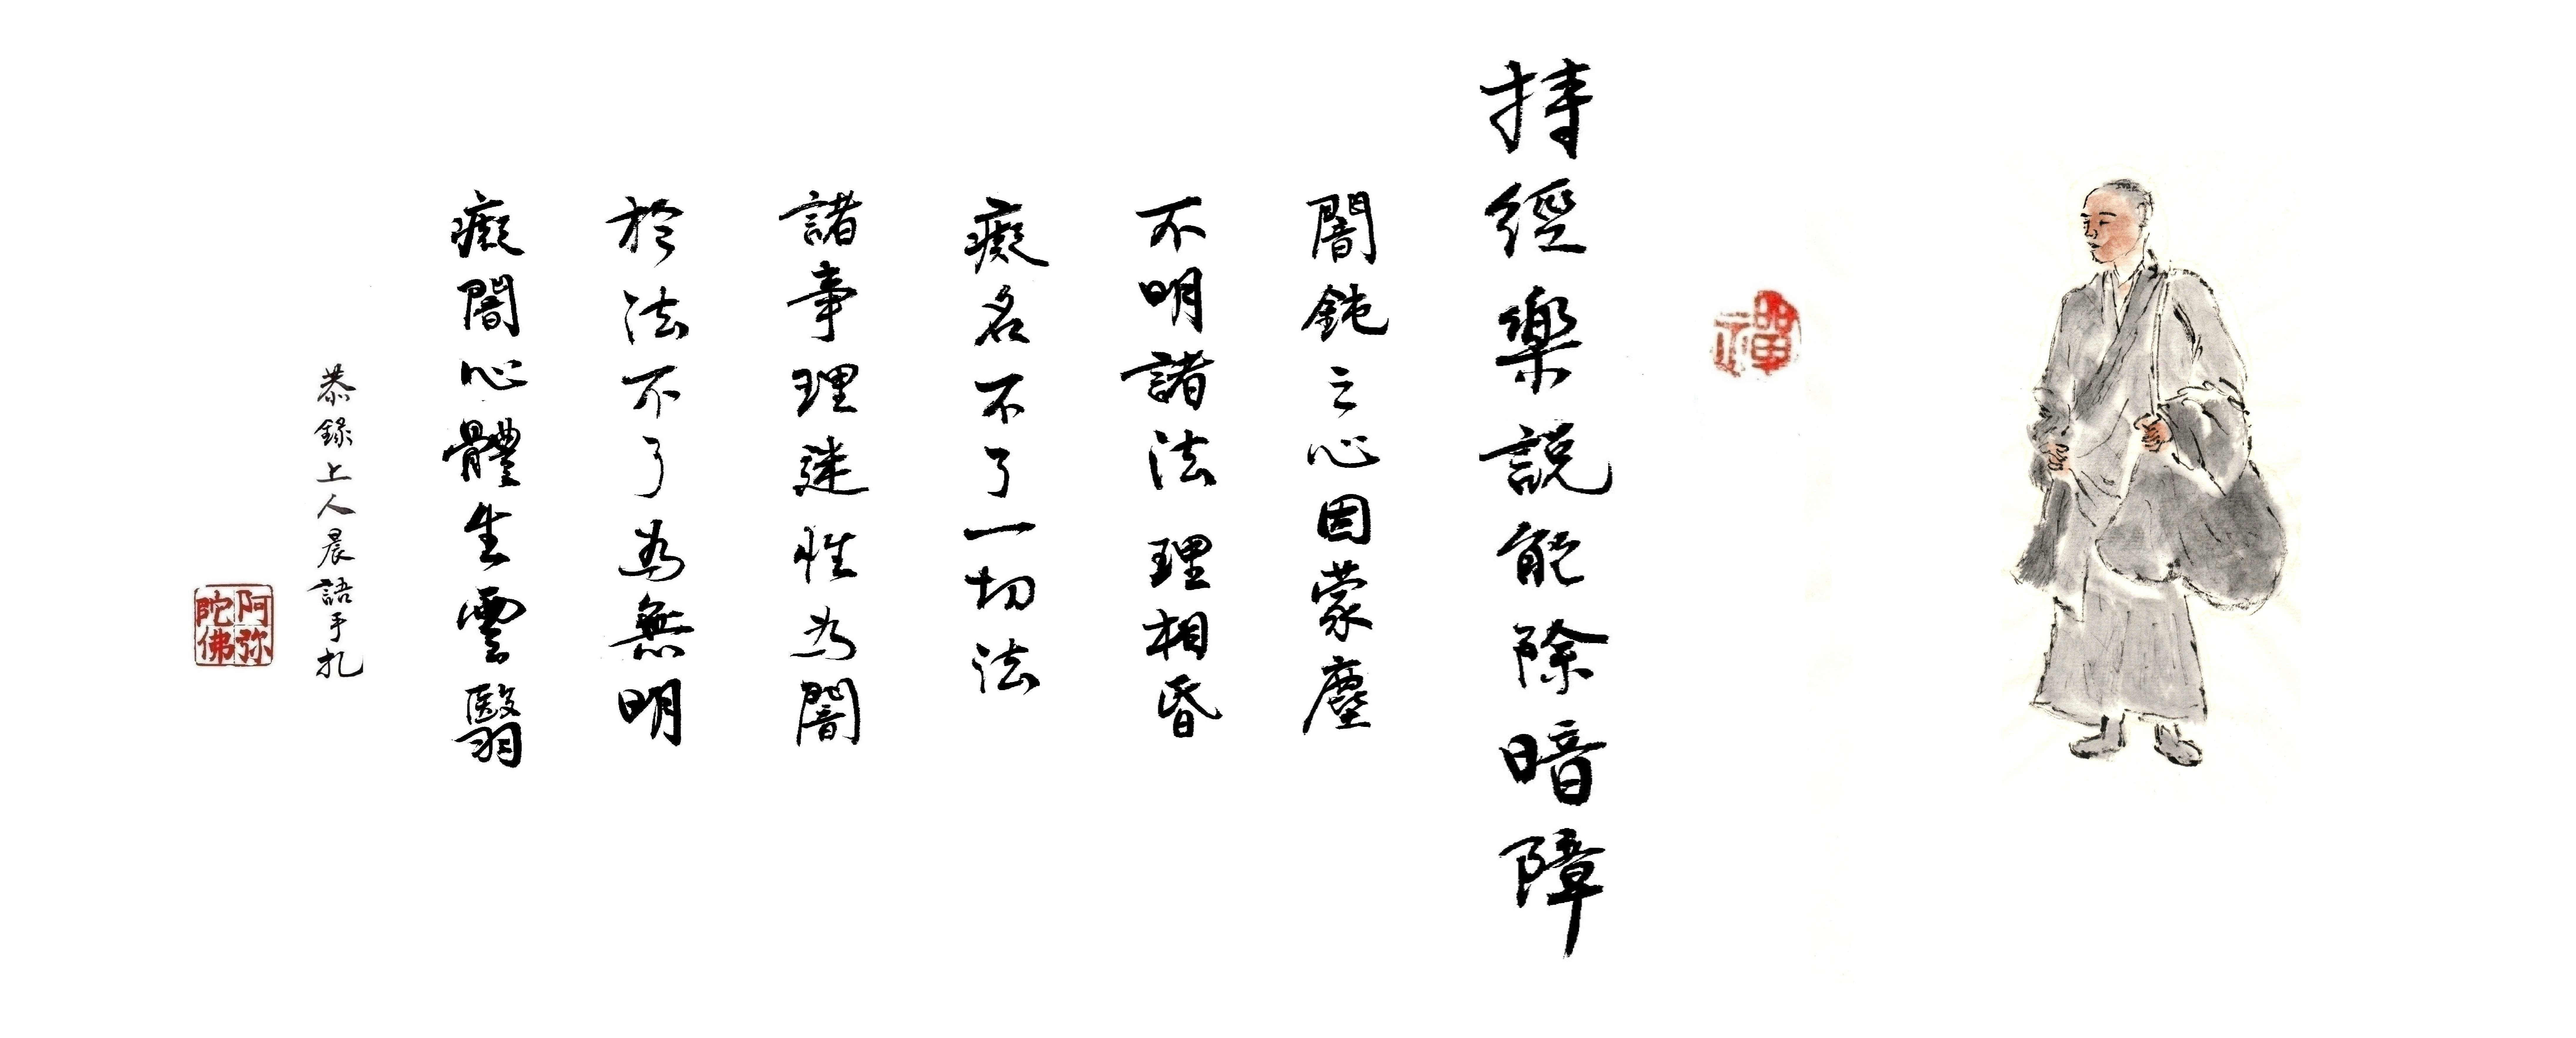 禪
持經樂説能除暗障
闇鈍之心因蒙塵
不明諸法理相昏
癡名不了一切法
諸事理迷性為闇
於法不了為無明
癡闇心體生雲翳
恭錄上人晨語手札
阿弥陀佛